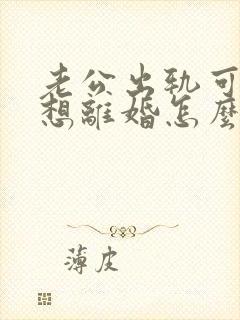 老公出轨可
想離婚怎麼
薄皮